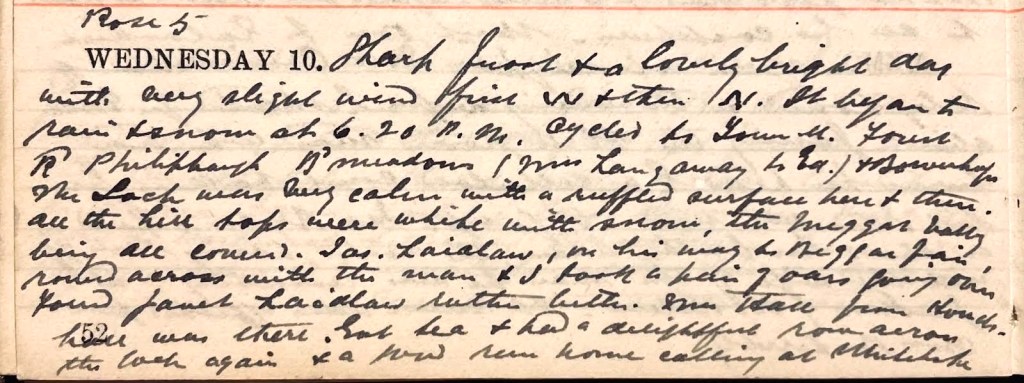 Rose 5
WEDNESDAY 10. Sharp frost & a lovely bright day
with very slight wind first W & then N. It began to
rain & snow at 6.20 P.M. Cycled to
Philiphaugh meadows (Mrs Lang away to Ed.) & Bowerhope
The Loch was very calm with a ruffled surface here & there.
All the hill tops were white with snow, the Meggat Valley
being all covered. Jas. Laidlaw, on his way to Biggar fair,
rowed across with the man & I took a pair of oars going over
Found Janet Laidlaw rather better. Mrs Hall from
was there. Got tea & had a delightful row across
52
the loch again & a good run home calling at Whitehope